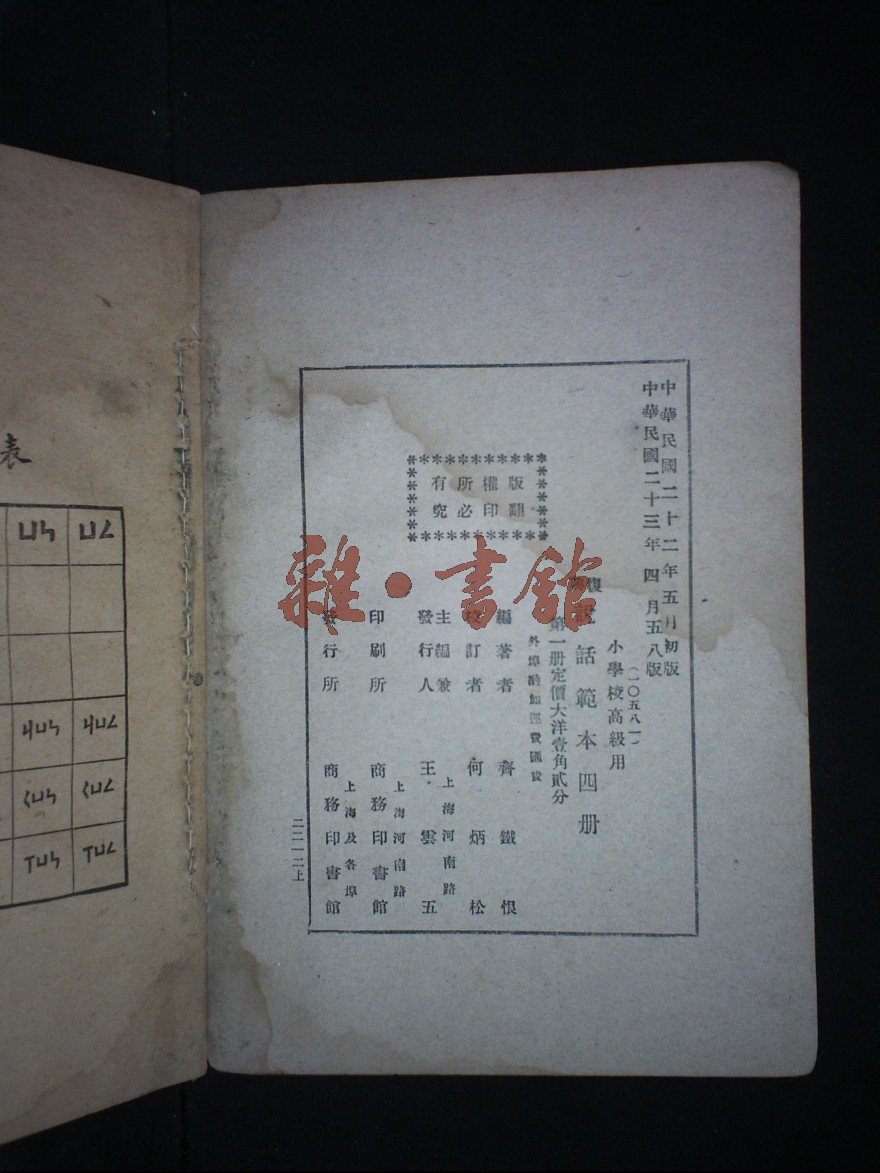 中華民國二十二年五月初版
中華民國二十三年四月五八版
(一〇五八一)
小學校高級用
復
說話範本四册
第一册定價大洋壹角貳分
外埠酌加運費匯費
版權所有
翻印必究
編著者 齊鐵恨
校訂者 何炳松
主編兼發行人 王雲五
上海河南路
印刷所 商務印書館
上海河南路
發行所 商務印書館
上海及各埠
二二一二上
雜·書館
表
ㄩㄥ ㄩㄣ
ㄐㄩㄥ ㄐㄩㄣ
ㄑㄩㄥ ㄑㄩㄣ
ㄒㄩㄥ ㄒㄩㄣ